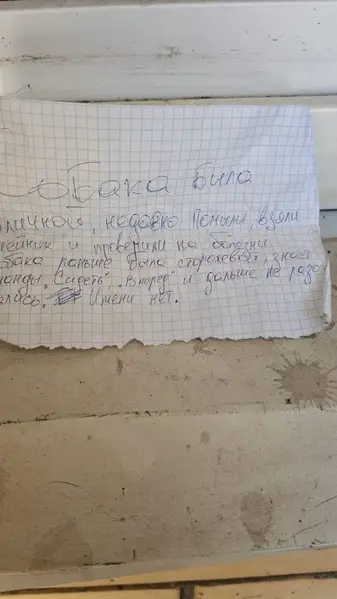 Собака была
личной, недавно помыли, взяли
ейник и проверили на болезни.
обака раньше была сторожевой, знает
манды "Сидеть", "Вперёд" и дальше не разо
ались. Имени нет.